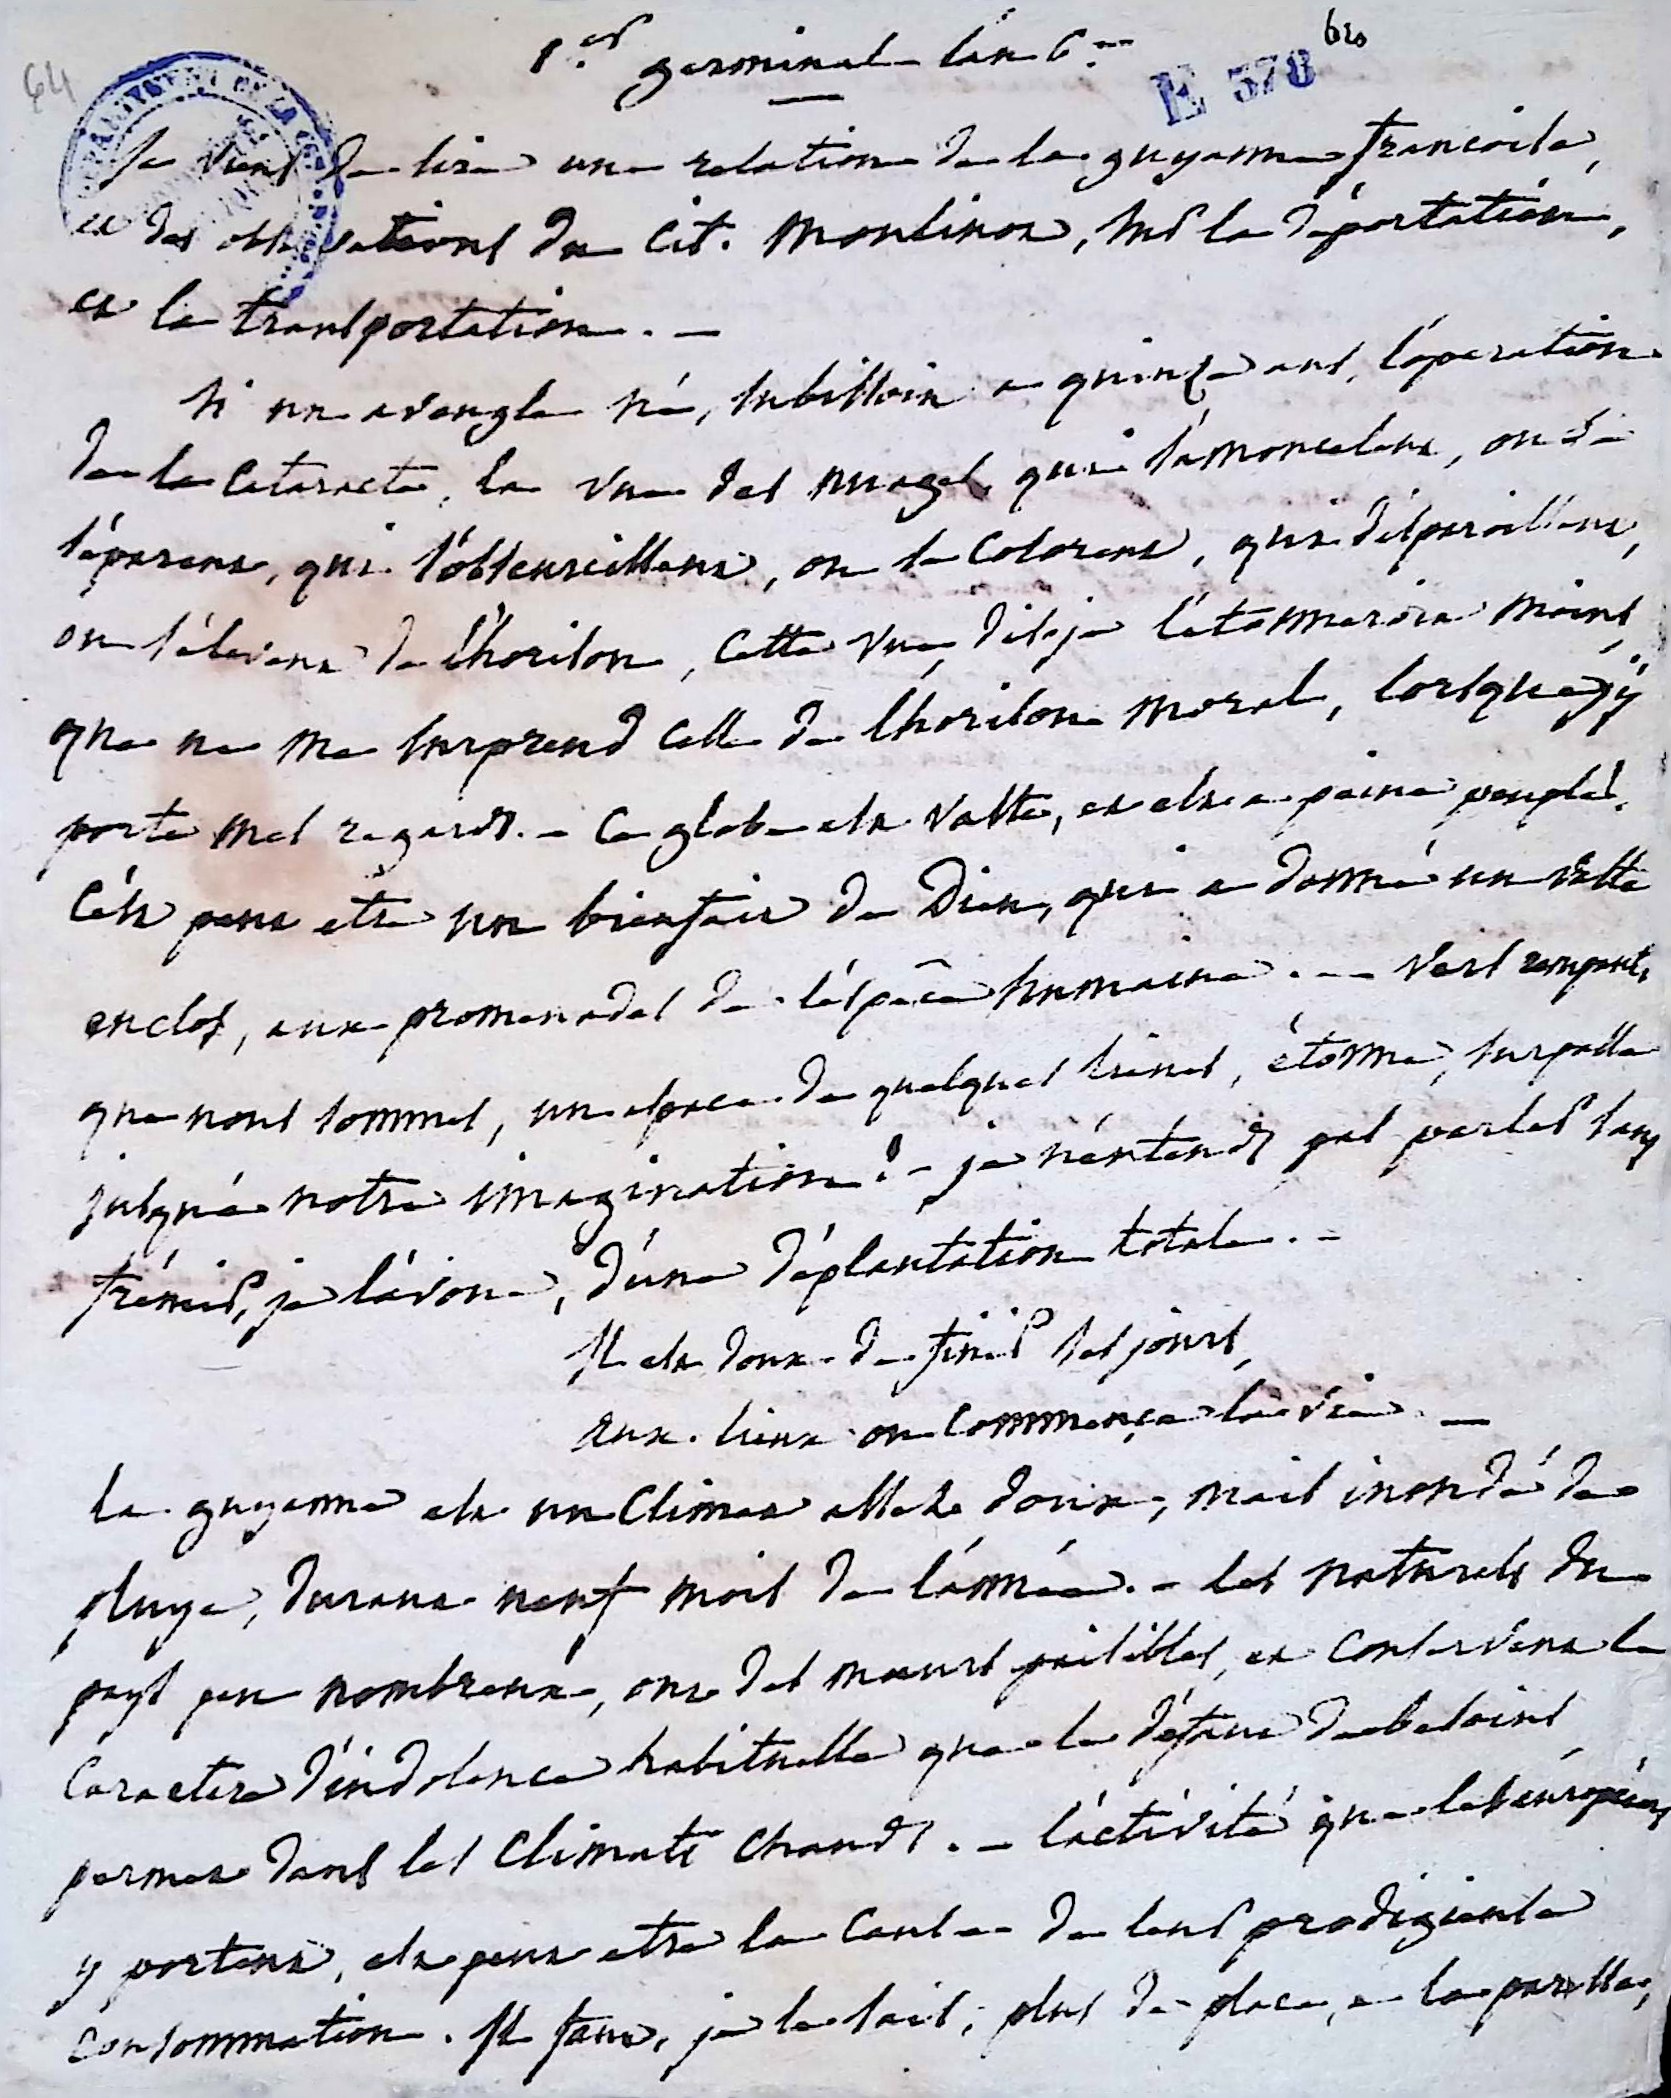 64
1.er germinal l'an 6.me
E 378 bis
je viens de lire une relation de la guyanne françoise,
et des observations du Cit. Monlinos, sur la déportation,
et la transportation. —
Si un aveugle né, subissoit a quinze ans, l'opération
de la Cataracte, la vue des nuages qui s'amoncelent, ou se
séparent, qui s'obscurcissent, ou se colorent, qui disparoissent,
ou s'élevent de l'horison, cette vue, dis-je l'étonneroit moins,
que ne me surprend celle de l'horison moral, lorsque j'y
porte mes regards. — Ce globe est vaste, et est a peine peuplé.
C'est peut etre un bienfait de Dieu, qui a donné un vaste
enclos, aux promenades de l'éspêce humaine. — Vers rampants
que nous sommes, un espace de quelques lieues, étonne, surpasse
jusqu'a notre imagination ! — je n'éntends pas parler sans
frémir, je l'avoue, d'une déplantation totale. —
Il est doux de finir ses jours,
aux lieux ou commença la vie. —
La guyanne est un Climat assez doux, mais inondé de
pluye, durant neuf mois de l'année. — les naturels du
pays peu nombreux, ont des mœurs paisibles, et conservent le
Caractere d'indolence habituelle que le défaut de besoins
permet dans les Climats chauds. — l'activité que les européens
y portent, est peut etre la cause de leur prodigieuse
consommation. Il faut, je le sais, plus de place, a la paresse,